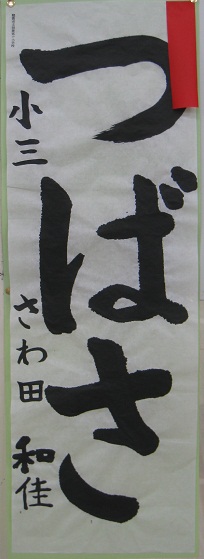 つばさ
小三 さわ田 和佳